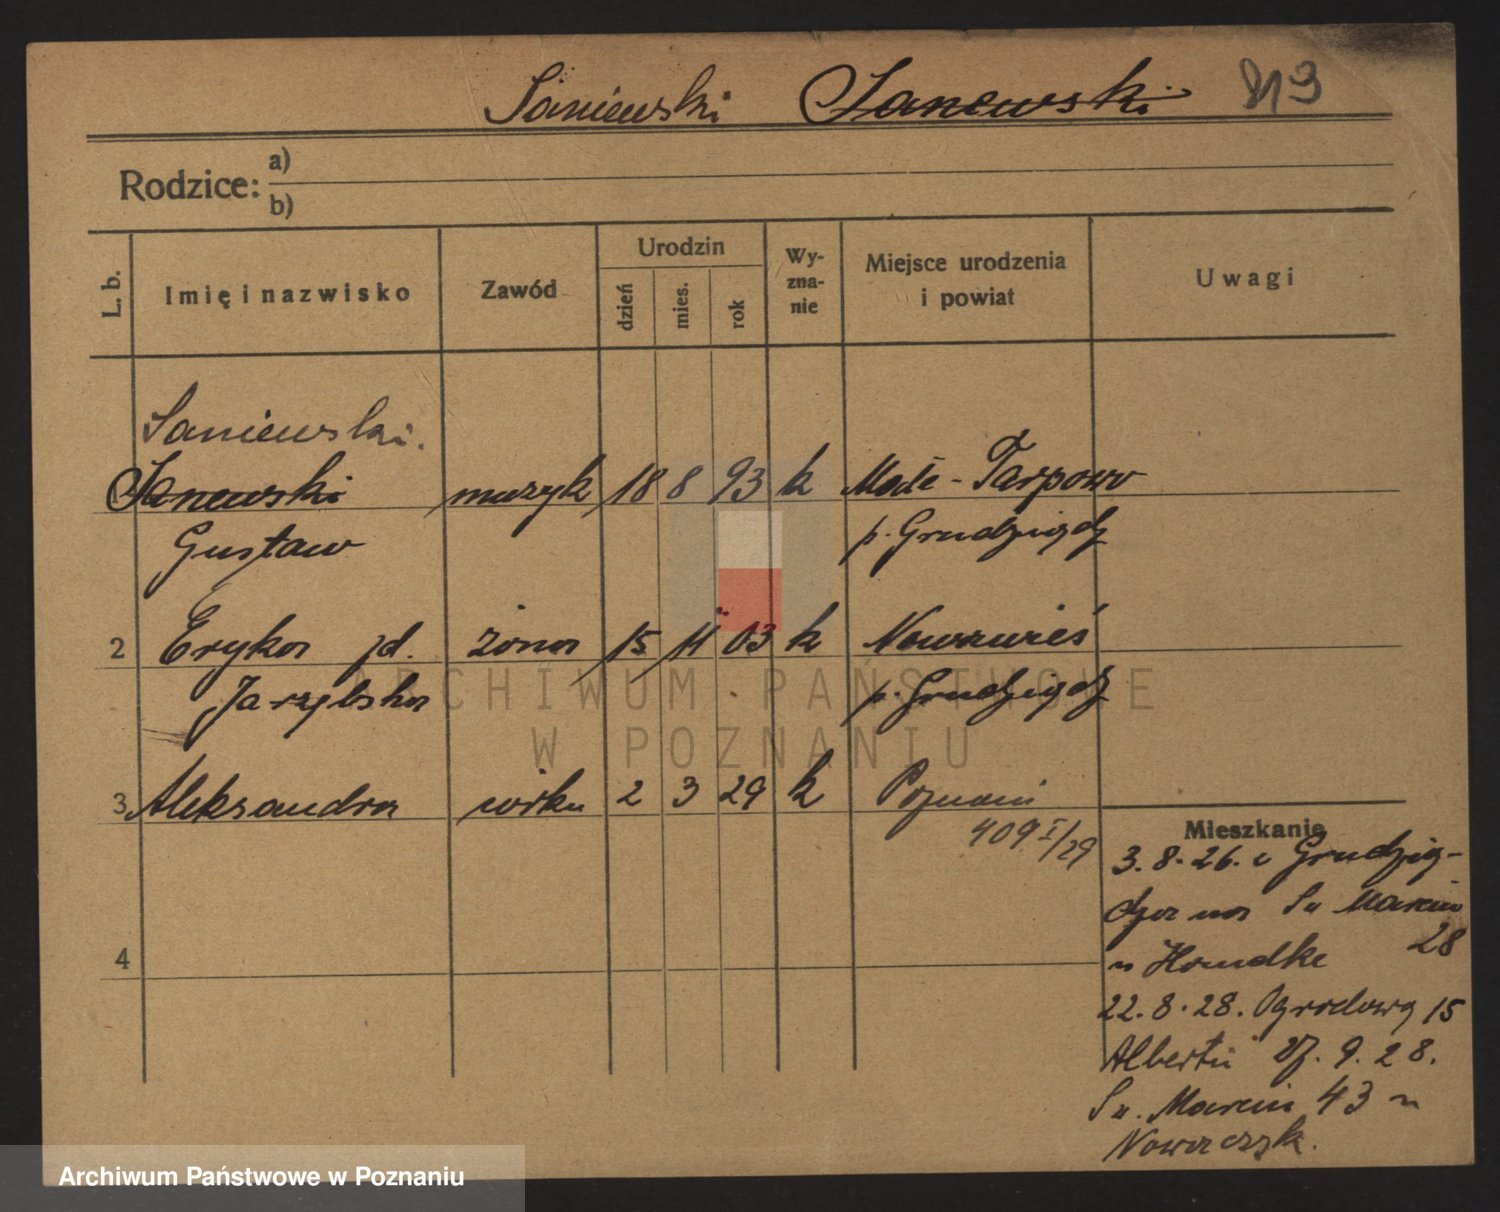 Saniewski Sanewski 813
Rodzice: a)
b)
L. b. Imię i nazwisko Zawód Urodzin dzień mies. rok Wyznanie Miejsce urodzenia i powiat Uwagi
Saniewski.
Sanewski muzyk 18 8 93 k Małe-Tarpowo
Gustaw p. Grudziądz
2 Eryka żona 15 11 03 k Nowawieś
Jarzębska p. Grudziądz
3 Aleksandra córka 2 3 29 k Poznań
409 I/29
Mieszkanie
3.8.26. z Grudzią-
dza na Św Marcin
28
22.8.28. Ogrodowa 15
9.28.
Św. Marcin 43 u
4
ARCHIWUM PAŃSTWOWE
W POZNANIU
Archiwum Państwowe w Poznaniu